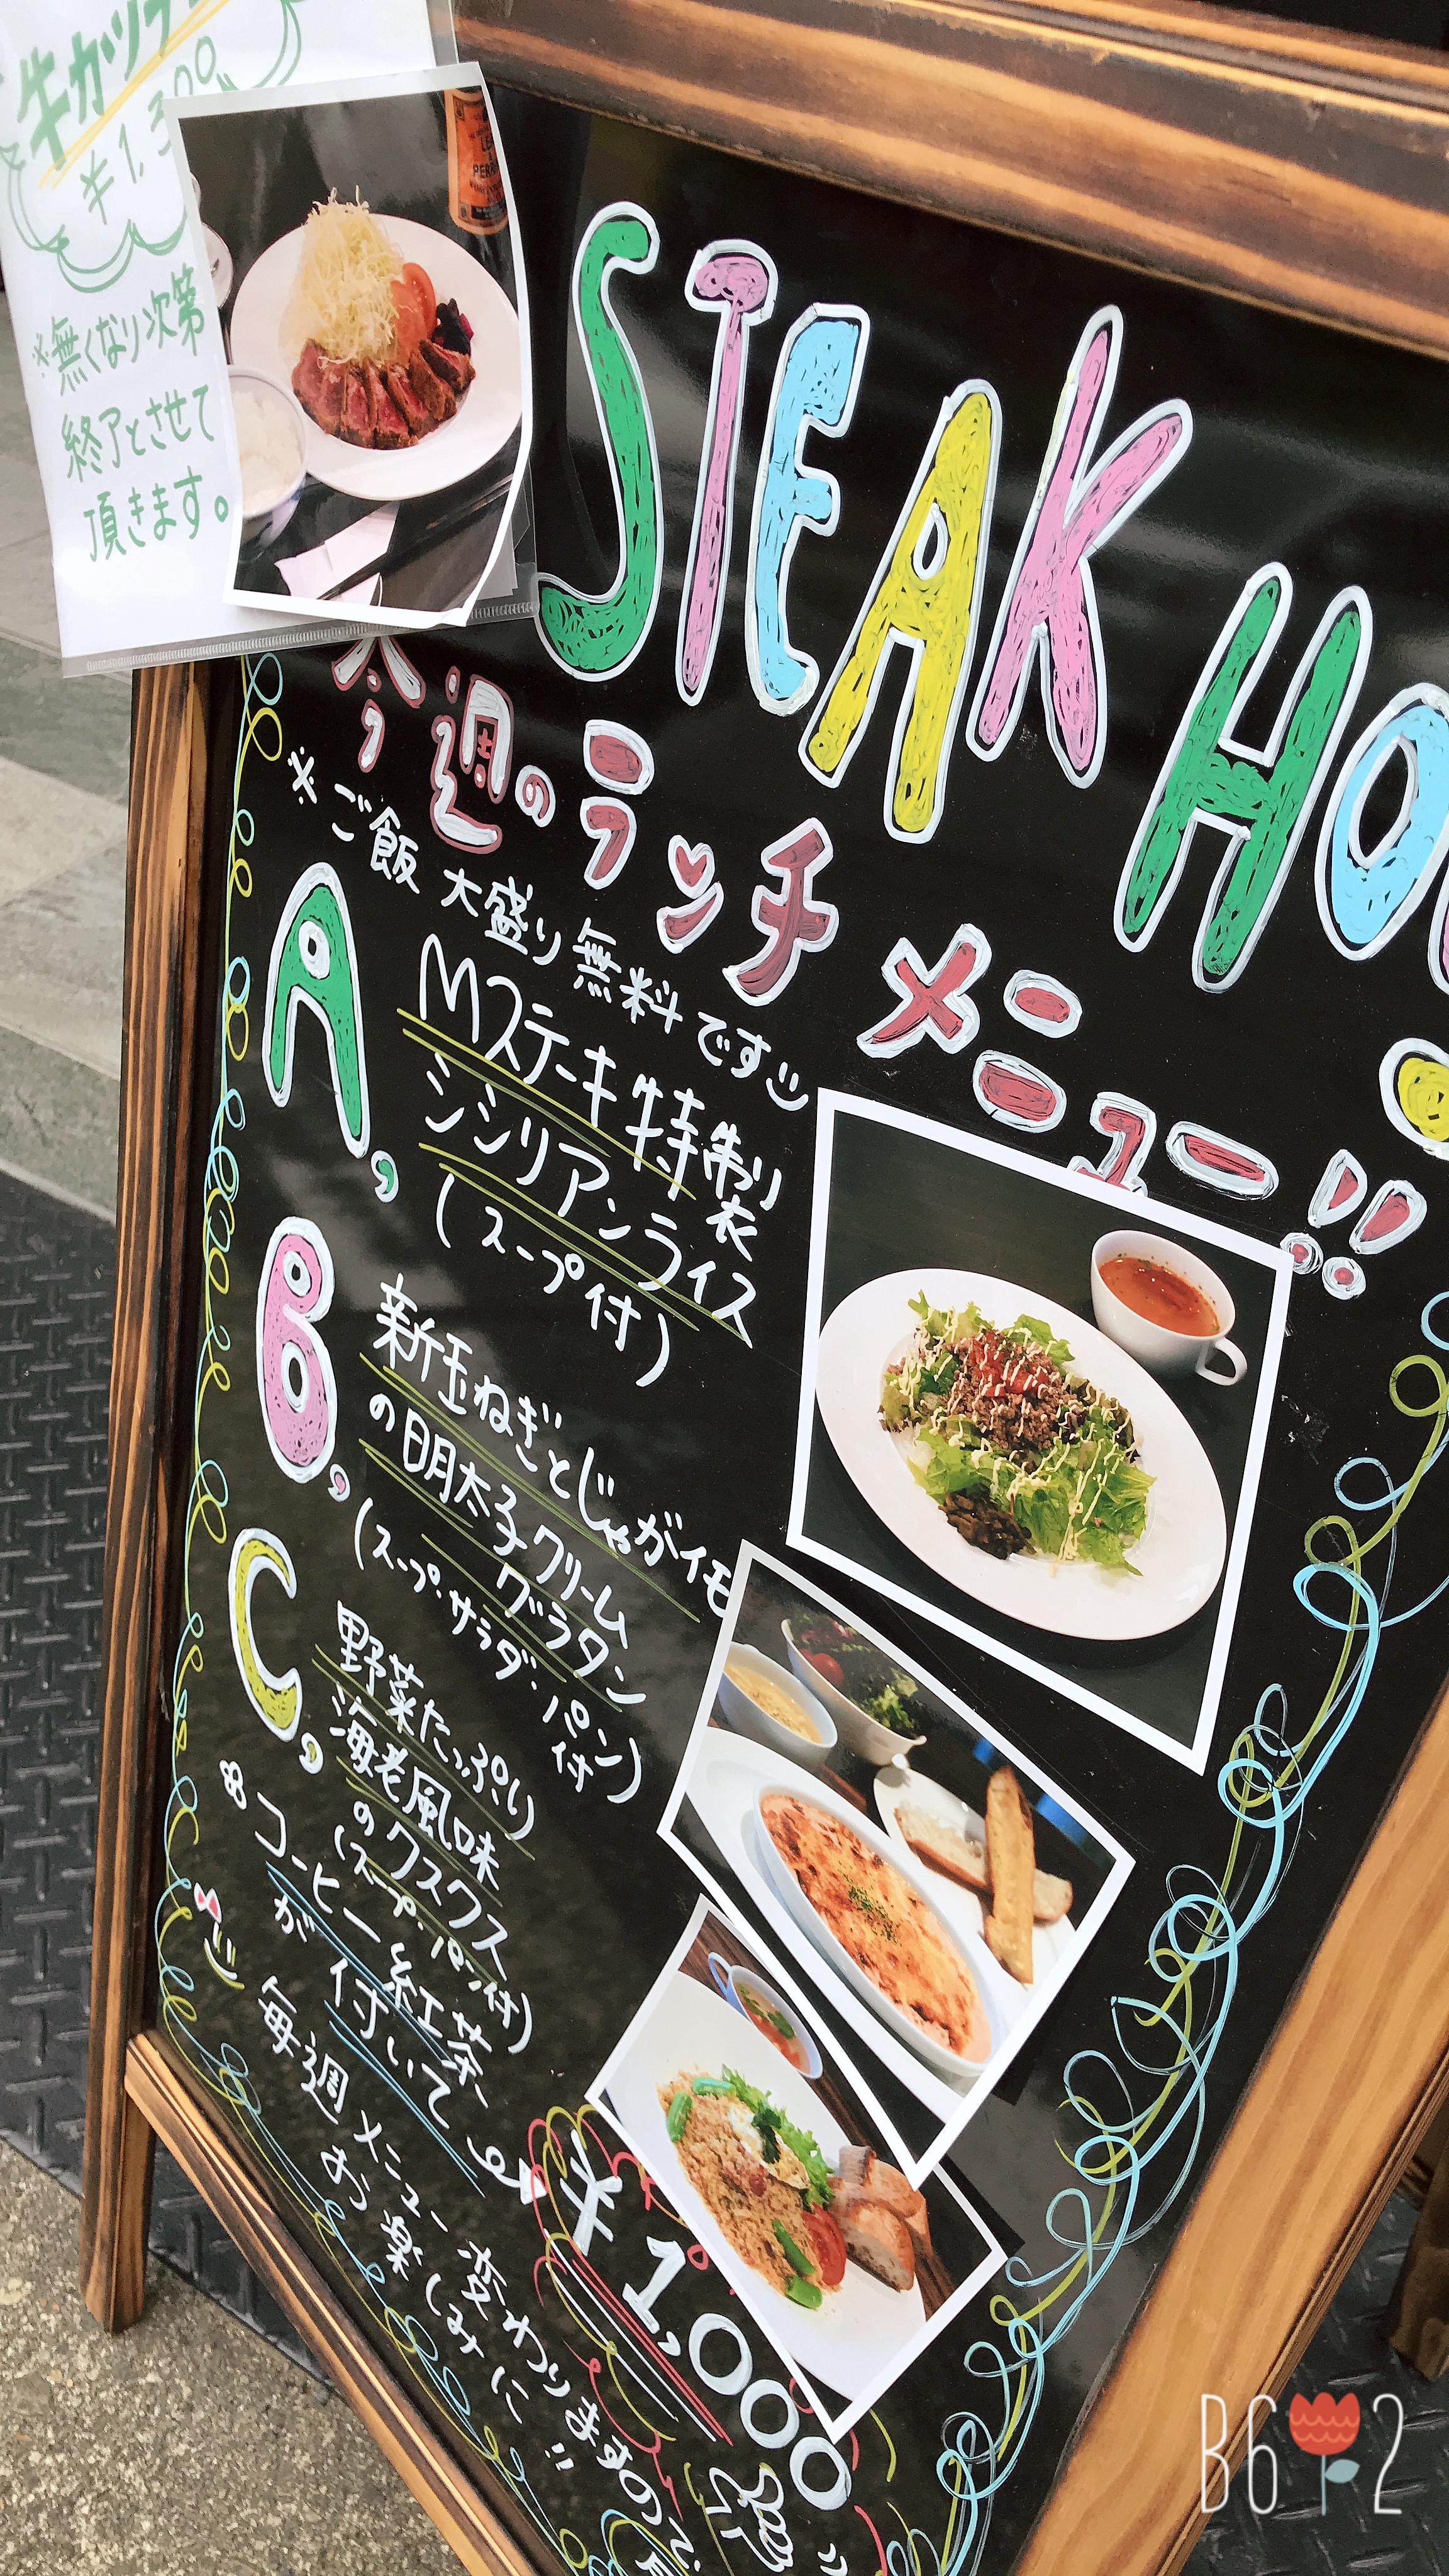 牛カツラ
¥1,300
※無くなり次第
終了とさせて
頂きます。
LEA
PERRINS
STEAK HO
今週のランチメニュー!!
※ご飯大盛り無料です
A,
Mステーキ特製
シシリアンライス
(スープ付)
B,
新玉ねぎとじゃがイモ
の明太子クリーム
グラタン
(スープ・サラダ・パン付)
C,
野菜たっぷり
海老風味
のクスクス
(スープ・パン付)
コーヒー紅茶
が付いて
¥1,000
毎週メニュー変わりますので、
お楽しみに!!
B612